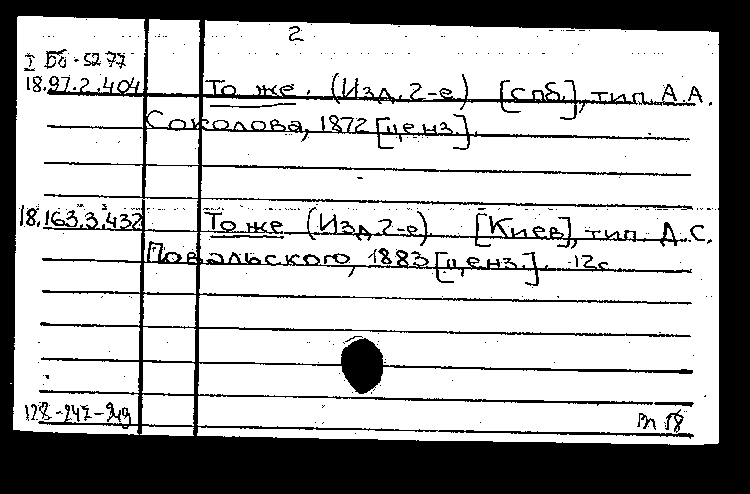 2
I Бб-5277
18.97.2.404 То же. (Изд. 2-е) [спб.], тип. А.А.
Соколова, 1872 [ценз.].
18.163.3.432 То же (Изд. 2-е) [Киев], тип. Д.С.
Повальского, 1883 [ценз.]. 12с
128-247-949